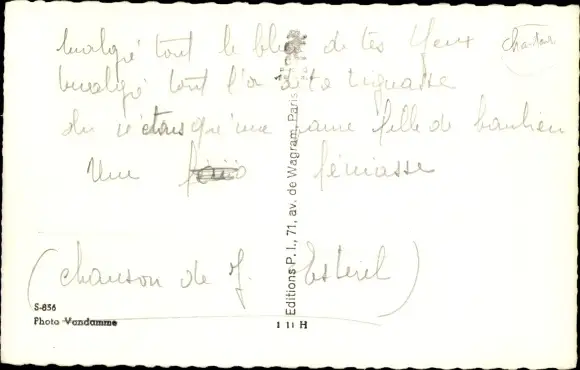 Malgré tout le bleu de tes yeux
Malgré tout l'or de ta tignasse
tu n'étais qu'une pauvre fille de banlieue
Une féniasse
(chanson de J. Esterel)
Editions P. I., 71, av. de Wagram, Paris
S-836
Photo Vandamme
1 11 H